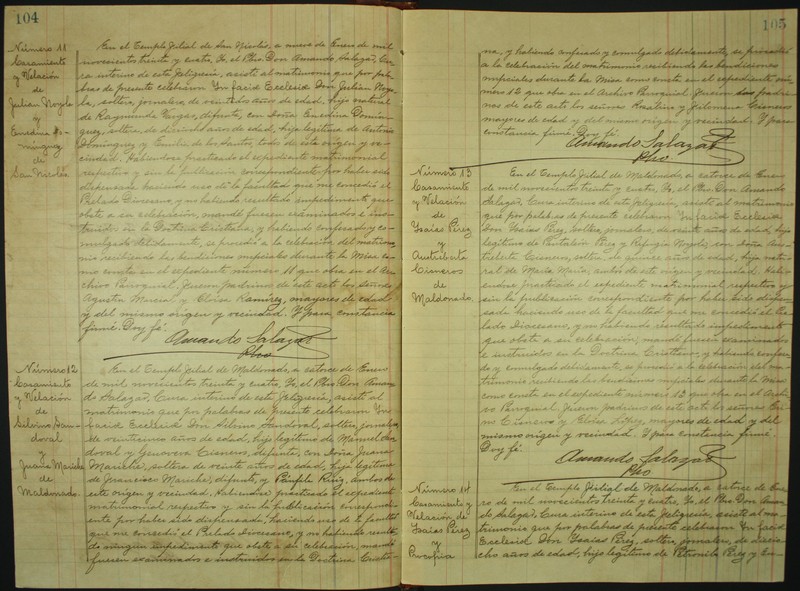 104
Número 11
Casamiento
y Velación
de
Julian Noyola
y
Enedina Do-
minguez
de
San Nicolás
En el Templo filial de San Nicolás, a nueve de Enero de mil
novecientos treinta y cuatro, Yo, el Pbro. Don Amando Salazar, Cu-
ra interino de esta feligresía, asistí al matrimonio que por pala-
bras de presente celebraron In facie Ecclesiæ Don Julian Noyo-
la, soltero, jornalero, de veintidos años de edad, hijo natural
de Raymunda Vargas, difunta, con Doña Enedina Domin-
guez, soltera, de dieciocho años de edad, hija legítima de Antonio
Dominguez y Emilia de los Santos, todos de este origen y ve-
cindad. Habiendose practicado el expediente matrimonial
respectivo y sin la publicación correspondiente por haber sido
dispensada haciendo uso de la facultad que me concedió el
Prelado Diocesano, y no habiendo resultado impedimento que
obste a su celebración, mandé fuesen examinados e ins-
truidos en la Doctrina Cristiana, y habiendo confesado y co-
mulgado debidamente, se procedió a la celebración del matrimo-
nio recibiendo las bendiciones nupciales durante la Misa co-
mo consta en el expediente número 11 que obra en el Ar-
chivo Parroquial. Fueron padrinos de este acto los señores
Agustin Marcial y Eloisa Ramírez, mayores de edad
y del mismo origen y vecindad. Y para constancia
firmé. Doy fé.
Amando Salazar
Pbro
Número 12
Casamiento
y Velación
de
Silvino San-
doval
y
Juana Mariche
de
Maldonado.
En el Templo filial de Maldonado, a catorce de Enero
de mil novecientos treinta y cuatro, Yo, el Pbro. Don Aman-
do Salazar, Cura interino de esta feligresía, asistí al
matrimonio que por palabras de presente celebraron In
facie Ecclesiæ Don Silvino Sandoval, soltero, jornalero,
de veinticinco años de edad, hijo legítimo de Manuel San-
doval y Genoveva Cisneros, difunta, con Doña Juana
Mariche, soltera de veinte años de edad, hija legítima
de Francisco Mariche, difunto, y Panfila Ruiz, ambos de
este origen y vecindad. Habiendose practicado el expediente
matrimonial respectivo y sin la publicación correspondi-
ente por haber sido dispensada, haciendo uso de la facultad
que me concedió el Prelado Diocesano, y no habiendo resulta-
do ningun impedimento que obste a su celebración, mandé
fuesen examinados e instruidos en la Doctrina Cristia-
105
na, y habiendo confesado y comulgado debidamente, se procedió
a la celebración del matrimonio recibiendo las bendiciones
nupciales durante la Misa como consta en el expediente nú-
mero 12 que obra en el Archivo Parroquial. Fueron padri-
nos de este acto los señores y Filomena Cisneros
mayores de edad y del mismo origen y vecindad. Y para
constancia firmé. Doy fé.
Amando Salazar
Pbro
Número 13
Casamiento
y Velación
de
Isaias Pérez
y
Cisneros
de
Maldonado.
En el Templo filial de Maldonado, a catorce de Enero
de mil novecientos treinta y cuatro, Yo, el Pbro. Don Amando
Salazar, Cura interino de esta feligresía, asistí al matrimonio
que por palabras de presente celebraron In facie Ecclesiæ
Don Isaias Pérez, soltero, jornalero, de veinte años de edad, hijo
legítimo de Pantaleón Pérez y Refugia Noyola, con Doña
Cisneros, soltera de quince años de edad, hija natu-
ral de María, ambos de este origen y vecindad. Habi-
endose practicado el expediente matrimonial respectivo y
sin la publicación correspondiente por haber sido dispen-
sada haciendo uso de la facultad que me concedió el Pre-
lado Diocesano, y no habiendo resultado impedimento
que obste a su celebración, mandé fuesen examinados
e instruidos en la Doctrina Cristiana, y habiendo confesa-
do y comulgado debidamente, se procedió a la celebración del ma-
trimonio recibiendo las bendiciones nupciales durante la Misa
como consta en el expediente número 13 que obra en el Archi-
vo Parroquial. Fueron padrinos de este acto los señores
Cisneros y López, mayores de edad y del
mismo origen y vecindad. Y para constancia firmé.
Doy fé.
Amando Salazar
Pbro
Número 14
Casamiento y
Velación de
Isaias Pérez
y
Procopia
En el Templo filial de Maldonado, a catorce de Ene-
ro de mil novecientos treinta y cuatro, Yo, el Pbro. Don Aman-
do Salazar, Cura interino de esta feligresía, asistí al ma-
trimonio que por palabras de presente celebraron In facie
Ecclesiæ Don Isaias Pérez, soltero, jornalero, de diecio-
cho años de edad, hijo legítimo de Petronilo Pérez y En-